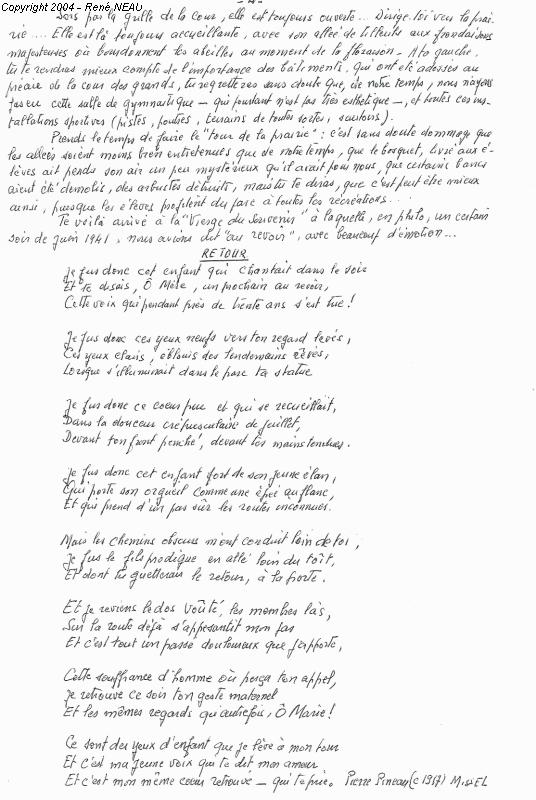 Copyright 2004 - René NEAU
Sors par la grille de la cour, elle est toujours ouverte... Dirige-toi vers la prai-
rie... Elle est là toujours accueillante, avec son allée de tilleuls aux frondaisons
majestueuses où bourdonnent les abeilles au moment de la floraison - A ta gauche,
tu te rendras mieux compte de l'importance des bâtiments, qui ont été adossés au
préau de la cour des grands, tu regretteras sans doute que, de notre temps, nous n'ayons
pas eu cette salle de gymnastique - qui pourtant n'est pas très esthétique -, et toutes ces ins-
tallations sportives (pistes, poutres, terrains de toutes sortes, sautoirs).
Prends le temps de faire le "tour de la prairie" : c'est sans doute dommage que
les allées soient moins bien entretenues que de notre temps, que le bosquet, livré aux é-
lèves ait perdu son air un peu mystérieux qu'il avait pour nous, que certains bancs
aient été démolis, des arbustes détruits, mais tu te diras, que c'est peut être mieux
ainsi, puisque les élèves profitent du parc à toutes les récréations...
Te voilà arrivé à la "Vierge du Souvenir" à laquelle, en photo, un certain
soir de juin 1941, nous avions dit "au revoir", avec beaucoup d'émotion...
RETOUR
Je fus donc cet enfant qui chantait dans le soir
Et te disais, Ô Mère, un prochain au revoir,
Cette voix qui pendant près de trente ans s'est tue !
Je fus donc ces yeux neufs vers ton regard levés,
Ces yeux clairs, éblouis des lendemains rêvés,
Lorsque s'illuminait dans le parc ta statue
Je fus donc ce coeur pur et qui se recueillait,
Dans la douceur crépusculaire de juillet,
Devant ton front penché, devant tes mains tendues.
Je fus donc cet enfant fort de son jeune élan,
Qui porte son orgueil comme une épée au flanc,
Et qui prend d'un pas sûr les routes inconnues.
Mais les chemins obscurs m'ont conduit loin de toi,
Je fus le fils prodigue en allé loin du toît,
Et dont tu guetterais le retour, à la porte.
Et je reviens le dos voûté, les membres las,
Sur la route déjà s'appesantit mon pas
Et c'est tout un passé douloureux que j'apporte,
Cette souffrance d'homme où perça ton appel,
Je retrouve ce soir ton geste maternel
Et les mêmes regards qu'autrefois, Ô Marie !
Ce sont des yeux d'enfant que je lève à mon tour
Et c'est ma jeune voix qui te dit mon amour
Et c'est mon même coeur retrouvé - qui te prie. Pierre Pineau (c 1937)